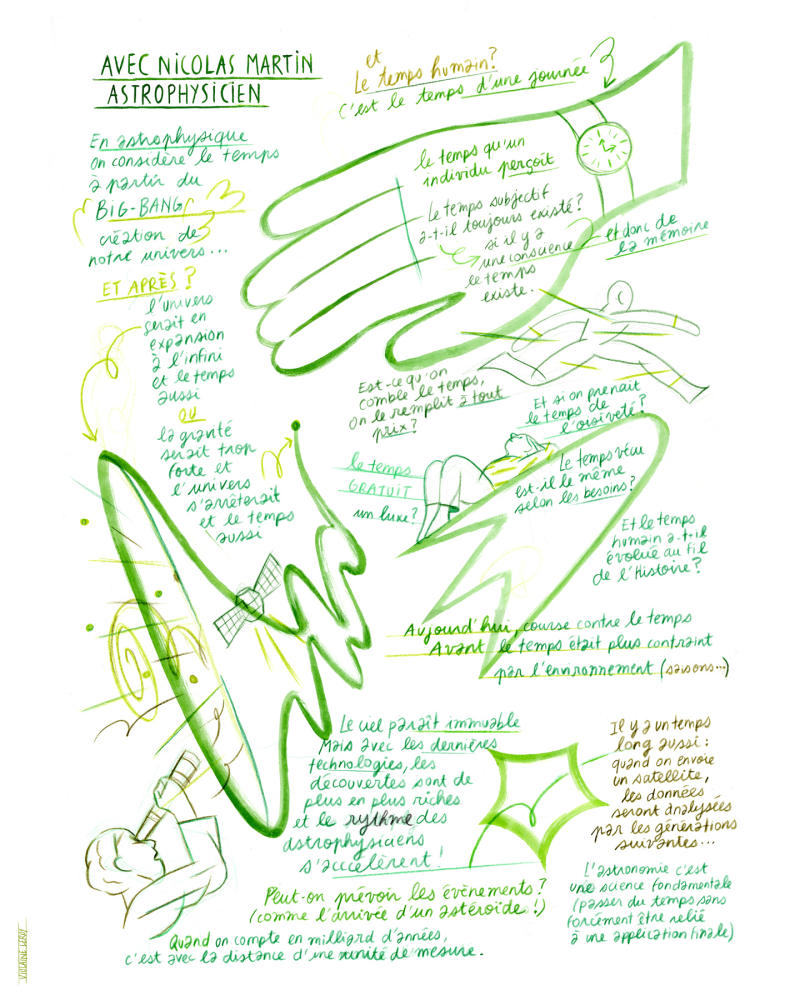 AVEC NICOLAS MARTIN
ASTROPHYSICIEN
En astrophysique
on considère le temps
à partir du
BIG-BANG
création de
notre univers...
ET APRÈS ?
l'univers
serait en
expansion
à l'infini
et le temps
aussi
OU
la gravité
serait trop
forte et
l'univers
s'arrêterait
et le temps
aussi
et
Le temps humain ?
C'est le temps d'une journée
le temps qu'un
individu perçoit
Le temps subjectif
a-t-il toujours existé ?
si il y a
une conscience
le temps
existe.
et donc de
la mémoire
Est-ce qu'on
comble le temps,
on le remplit à tout
prix ?
Et si on prenait
le temps de
l'oisiveté ?
le temps
GRATUIT
un luxe ?
Le temps vécu
est-il le même
selon les besoins ?
Et le temps
humain a-t-il
évolué au fil
de l'Histoire ?
Aujourd'hui, course contre le temps
Avant le temps était plus contraint
par l'environnement (saisons...)
Le ciel paraît immuable
Mais avec les dernières
technologies, les
découvertes sont de
plus en plus riches
et le rythme des
astrophysiciens
s'accélèrent !
Il y a un temps
long aussi :
quand on envoie
un satellite,
les données
seront analysées
par les générations
suivantes...
Peut-on prévoir les évènements ?
(comme l'arrivée d'un astéroïde !)
L'astronomie c'est
une science fondamentale
(passer du temps sans
forcément être relié
à une application finale)
Quand on compte en milliard d'années,
c'est avec la distance d'une unité de mesure.